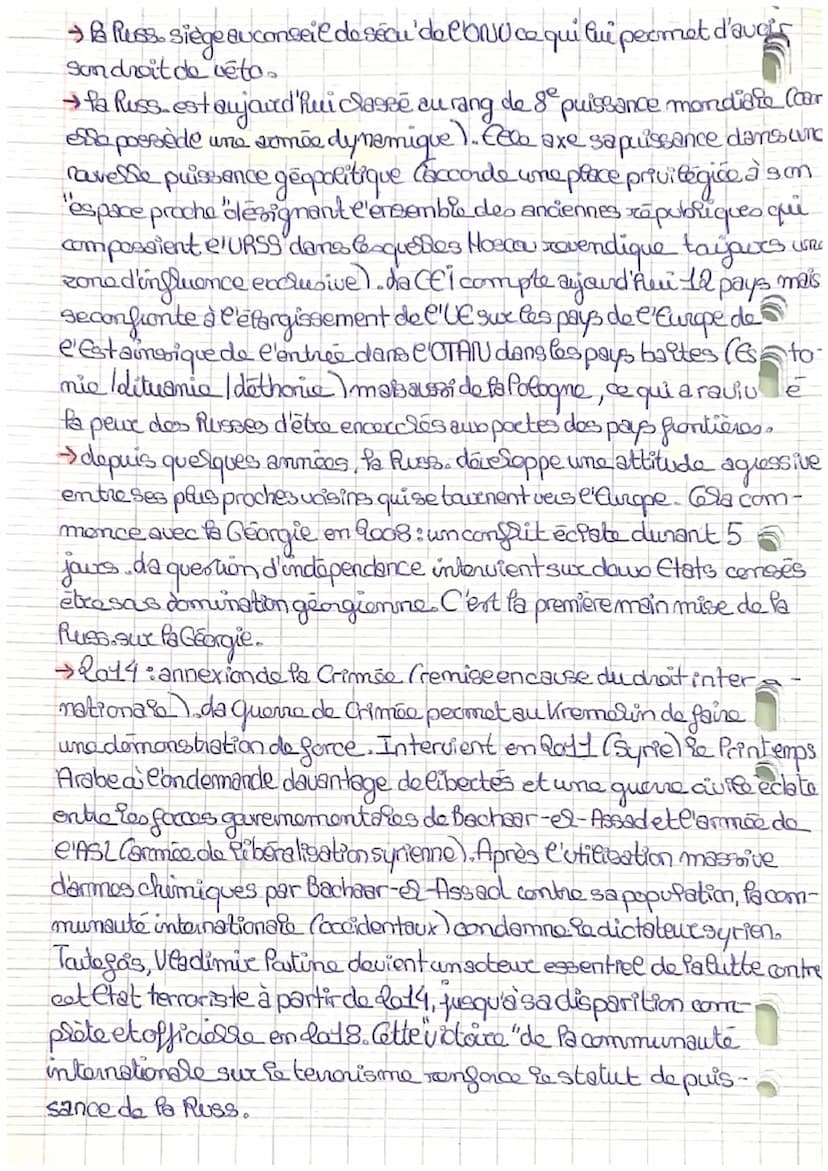 → la Russ. siège au conseil de sécu' de l'ONU ce qui lui permet d'avoir
son droit de véto.
→ la Russ. est aujourd'hui classé au rang de 8e puissance mondiale (car
elle possède une armée dynamique). Elle axe sa puissance dans une
nouvelle puissance géopolitique (accorde une place privilégiée à son
"espace proche" désignant l'ensemble des anciennes républiques qui
composaient l'URSS dans lesquelles Moscou revendique toujours une
zone d'influence exclusive). La CEI compte aujourd'hui 12 pays mais
se confronte à l'élargissement de l'UE sur les pays de l'Europe de
l'Est ainsi que de l'entrée dans l'OTAN dans les pays baltes (Esto-
nie / Lituanie / Lethonie) mais aussi de la Pologne, ce qui a ravivé
la peur des Russes d'être encerclés aux portes des pays frontières.
→ depuis quelques années, la Russ. développe une attitude agressive
entre ses plus proches voisins qui se tournent vers l'Europe. Cela com-
mence avec la Géorgie en 2008 : un conflit éclate durant 5
jours. La question d'indépendance intervient sur deux Etats censés
être sous domination géorgienne. C'est la première main mise de la
Russ. sur la Géorgie.
→ 2014 : annexion de la Crimée (remise en cause du droit interna-
nationale). La guerre de Crimée permet au Kremelin de faire
une démonstration de force. Intervient en 2011 (Syrie) le Printemps
Arabe où l'on demande davantage de libertés et une guerre civile éclate
entre les forces gouvernementales de Bachaar-el-Assad et l'armée de
l'ASL (armée de libéralisation syrienne). Après l'utilisation massive
d'armes chimiques par Bachaar-el-Assad contre sa population, la com-
munauté internationale (occidentaux) condamne le dictateur syrien.
Toutefois, Vladimir Poutine devient un acteur essentiel de la lutte contre
cet Etat terroriste à partir de 2014, jusqu'à sa disparition com-
plète et officielle en 2018. Cette "victoire" de la communauté
internationale sur le terrorisme renforce le statut de puis-
sance de la Russ.